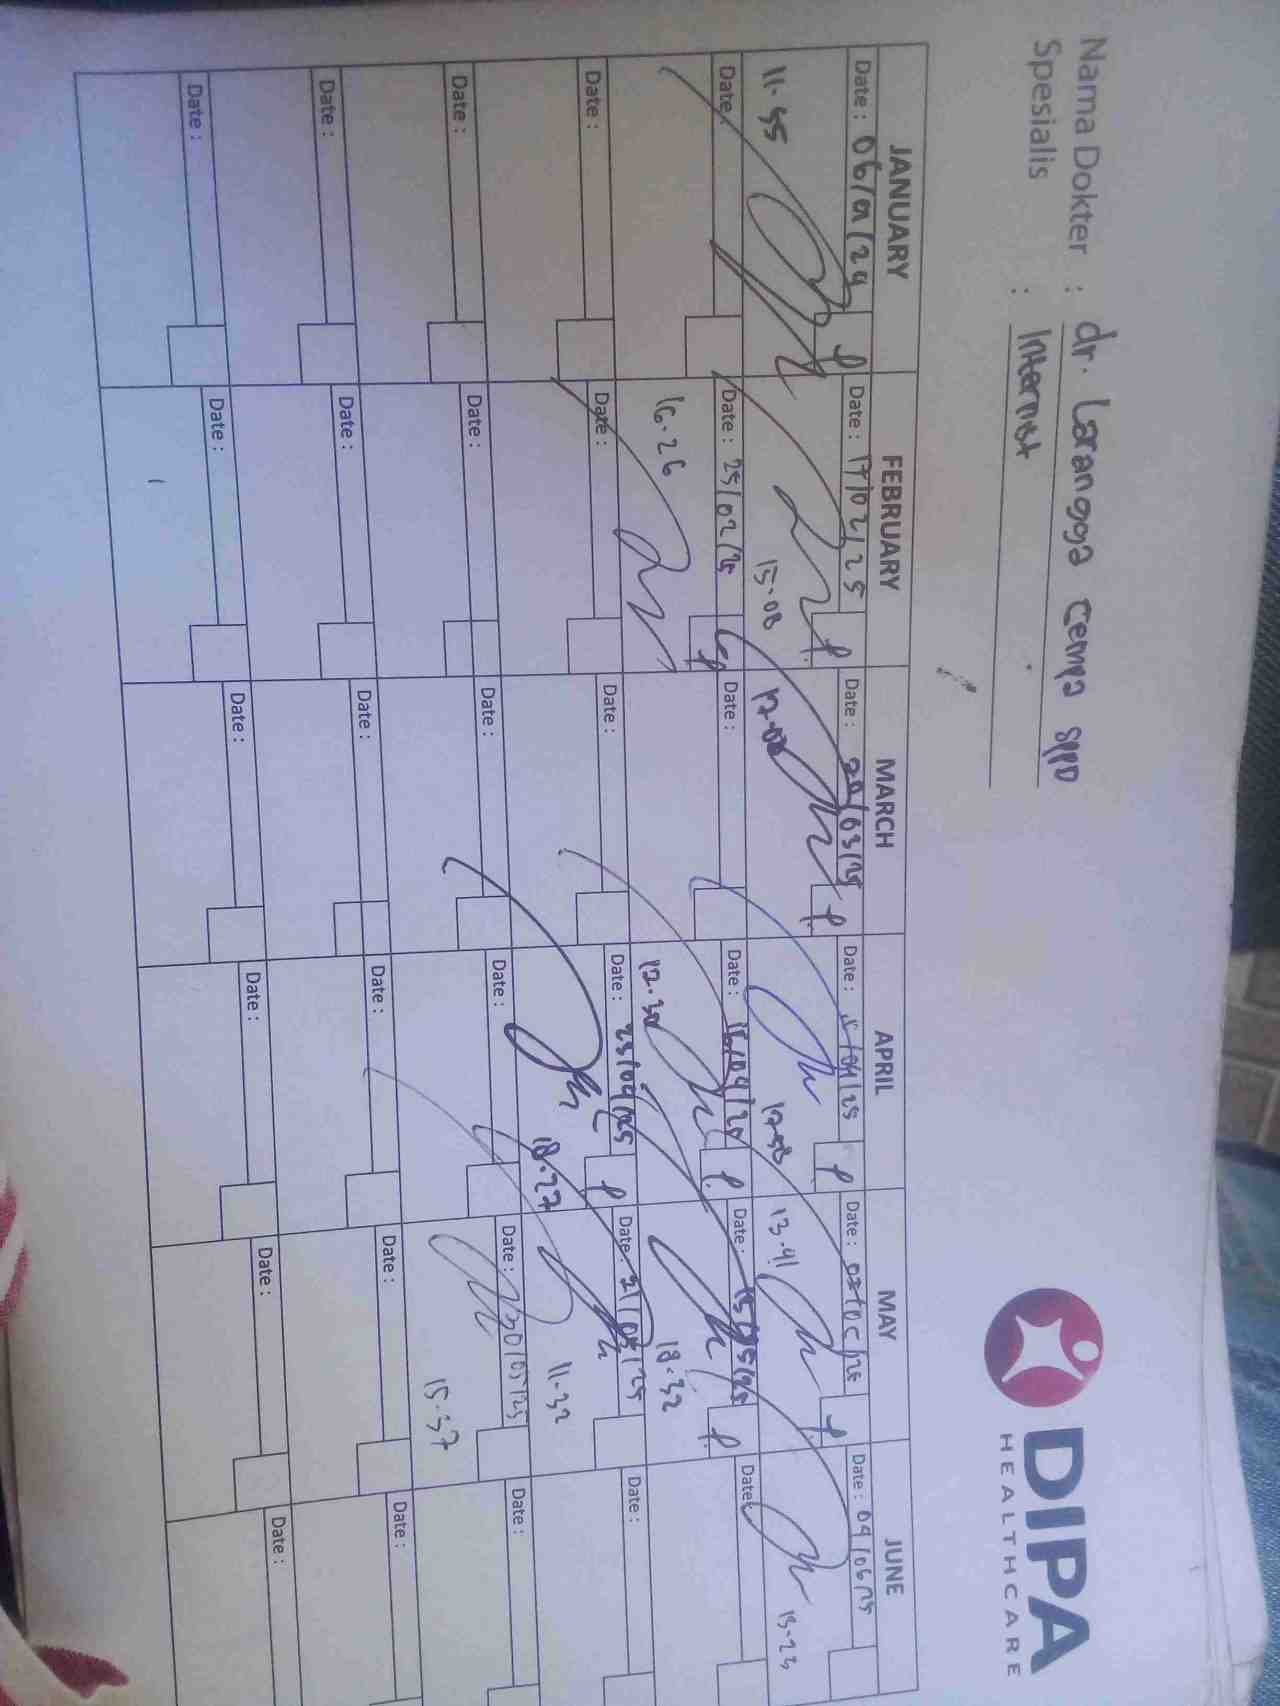 DIPA
HEALTHCARE
Nama Dokter : dr. Larangga Cempa SPPD
Spesialis : Internist
JANUARY FEBRUARY MARCH APRIL MAY JUNE
Date : 06/01/24 Date : 17/02/25 Date : 20/03/25 Date : 15/04/25 Date : Date : 04/06/25
11-35 15-08 17-08 17-58 13-41 13-23
Date : Date : 25/02/25 Date : Date : 16/04/25 Date : 15/05/25 Date :
16-26 12-30 18-32
Date : Date : Date : Date : 23/04/25 Date : 21/05/25 Date :
18-27 11-32
Date : Date : Date : Date : Date : 30/05/25 Date :
15-37
Date : Date : Date : Date : Date : Date :
Date : Date : Date : Date : Date : Date :